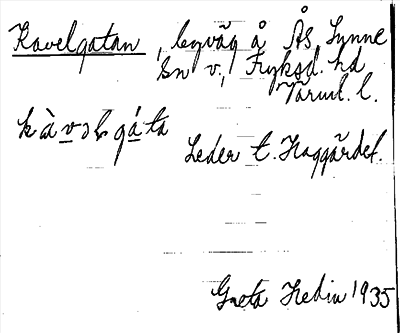 Kavelgatan, byväg å Ås, Sunne
Sn v., Fryksd. hd
Värml. l.
kàvəlgáta
Leder t. Haggärdet.
Greta Hedin 1935